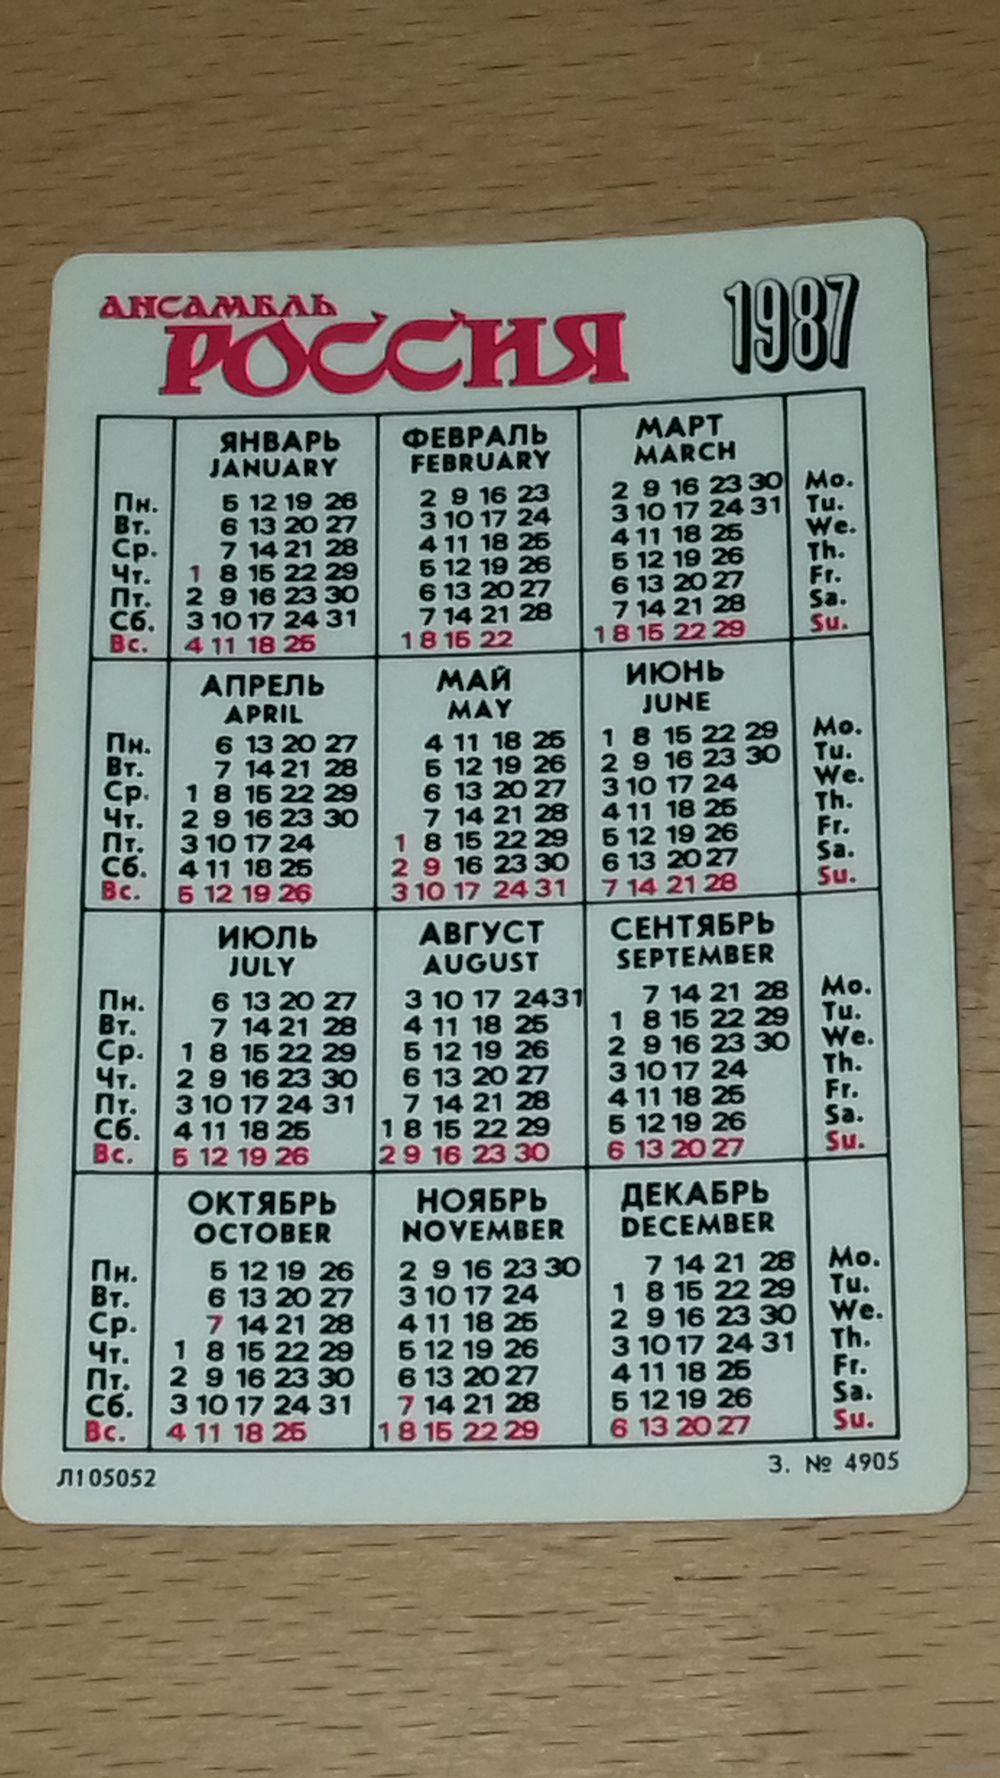 АНСАМБЛЬ
РОССИЯ 1987
ЯНВАРЬ ФЕВРАЛЬ МАРТ
JANUARY FEBRUARY MARCH
Пн. 5 12 19 26 2 9 16 23 2 9 16 23 30 Mo.
Вт. 6 13 20 27 3 10 17 24 3 10 17 24 31 Tu.
Ср. 7 14 21 28 4 11 18 25 4 11 18 25 We.
Чт. 1 8 15 22 29 5 12 19 26 5 12 19 26 Th.
Пт. 2 9 16 23 30 6 13 20 27 6 13 20 27 Fr.
Сб. 3 10 17 24 31 7 14 21 28 7 14 21 28 Sa.
Вс. 4 11 18 25 1 8 15 22 1 8 15 22 29 Su.
АПРЕЛЬ МАЙ ИЮНЬ
APRIL MAY JUNE
Пн. 6 13 20 27 4 11 18 25 1 8 15 22 29 Mo.
Вт. 7 14 21 28 5 12 19 26 2 9 16 23 30 Tu.
Ср. 1 8 15 22 29 6 13 20 27 3 10 17 24 We.
Чт. 2 9 16 23 30 7 14 21 28 4 11 18 25 Th.
Пт. 3 10 17 24 1 8 15 22 29 5 12 19 26 Fr.
Сб. 4 11 18 25 2 9 16 23 30 6 13 20 27 Sa.
Вс. 5 12 19 26 3 10 17 24 31 7 14 21 28 Su.
ИЮЛЬ АВГУСТ СЕНТЯБРЬ
JULY AUGUST SEPTEMBER
Пн. 6 13 20 27 3 10 17 24 31 7 14 21 28 Mo.
Вт. 7 14 21 28 4 11 18 25 1 8 15 22 29 Tu.
Ср. 1 8 15 22 29 5 12 19 26 2 9 16 23 30 We.
Чт. 2 9 16 23 30 6 13 20 27 3 10 17 24 Th.
Пт. 3 10 17 24 31 7 14 21 28 4 11 18 25 Fr.
Сб. 4 11 18 25 1 8 15 22 29 5 12 19 26 Sa.
Вс. 5 12 19 26 2 9 16 23 30 6 13 20 27 Su.
ОКТЯБРЬ НОЯБРЬ ДЕКАБРЬ
OCTOBER NOVEMBER DECEMBER
Пн. 5 12 19 26 2 9 16 23 30 7 14 21 28 Mo.
Вт. 6 13 20 27 3 10 17 24 1 8 15 22 29 Tu.
Ср. 7 14 21 28 4 11 18 25 2 9 16 23 30 We.
Чт. 1 8 15 22 29 5 12 19 26 3 10 17 24 31 Th.
Пт. 2 9 16 23 30 6 13 20 27 4 11 18 25 Fr.
Сб. 3 10 17 24 31 7 14 21 28 5 12 19 26 Sa.
Вс. 4 11 18 25 1 8 15 22 29 6 13 20 27 Su.
Л105052 З. № 4905